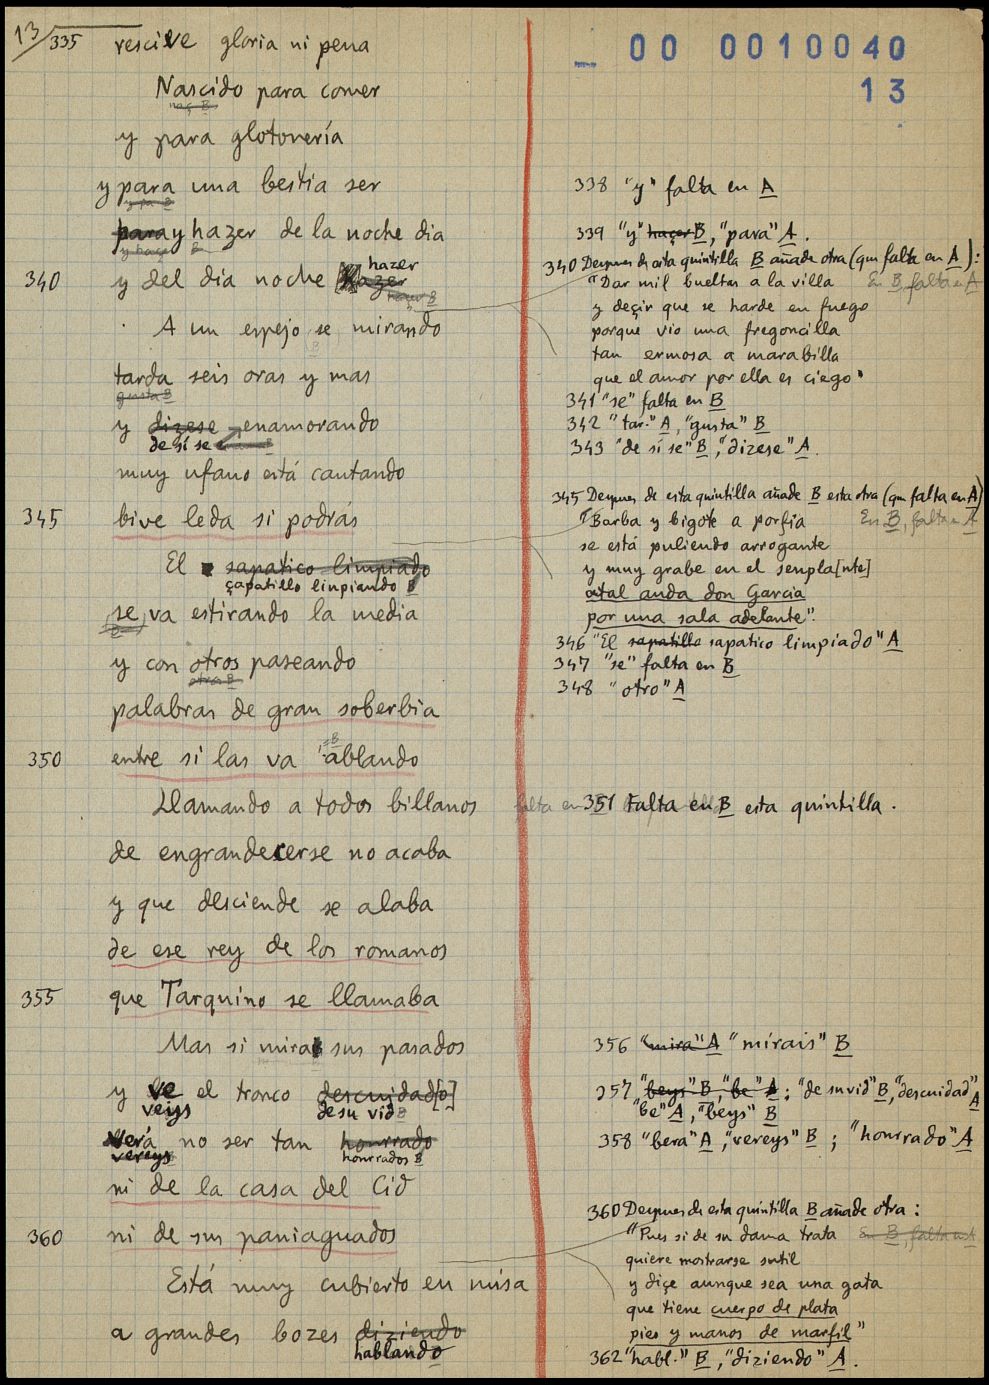 13/335 rescive gloria ni pena
00 0010040
13
Nascido para comer
y para glotonería
y para una bestia ser
para y hazer de la noche dia
340 y del dia noche hazer
hazer
A un espejo se mirando
tarda seis oras y mas
gusta B
y dizese enamorando
de sí se
muy ufano está cantando
345 bive leda si podrás
El sapatico limpiado
çapatillo linpiando B
se va estirando la media
y con otros paseando
otra B
palabras de gran soberbia
350 entre si las va ablando
Llamando a todos billanos
de engrandecerse no acaba
y que desciende se alaba
de ese rey de los romanos
355 que Tarquino se llamaba
Mas si mira sus pasados
y ve el tronco descuidad[o]
veys de su vid B
verá no ser tan honrrado
vereys honrrados B
ni de la casa del Cid
360 ni de sus paniaguados
Está muy cubierto en misa
a grandes bozes diziendo
hablando
338 "y" falta en A
339 "y" haçer B, "para" A.
340 Despues de esta quintilla B añade otra (que falta en A):
"Dar mil bueltas a la villa En B, falta en A
y deçir que se harde en fuego
porque vio una fregoncilla
tan ermosa a marabilla
que el amor por ella es ciego"
341 "se" falta en B
342 "tar." A, "gusta" B
343 "de sí se" B, "dizese" A.
345 Despues de esta quintilla añade B esta otra (que falta en A)
"Barba y bigote a porfia En B, falta en A
se está puliendo arrogante
y muy grabe en el senpla[nte]
atal anda don Garcia
por una sala adelante".
346 "El sapatillo sapatico limpiado" A
347 "se" falta en B
348 "otro" A
351 Falta en B esta quintilla.
356 "mira" A "mirais" B
357 "beys" B, "be" A; "de su vid" B, "descuidad" A
"be" A, "beys" B
358 "bera" A, "vereys" B; "honrrado" A
360 Despues de esta quintilla B añade otra:
"Pues si de su dama trata En B, falta en A
quiere mostrarse sutil
y diçe aunque sea una gata
que tiene cuerpo de plata
pies y manos de marfil"
362 "habl." B, "diziendo" A.